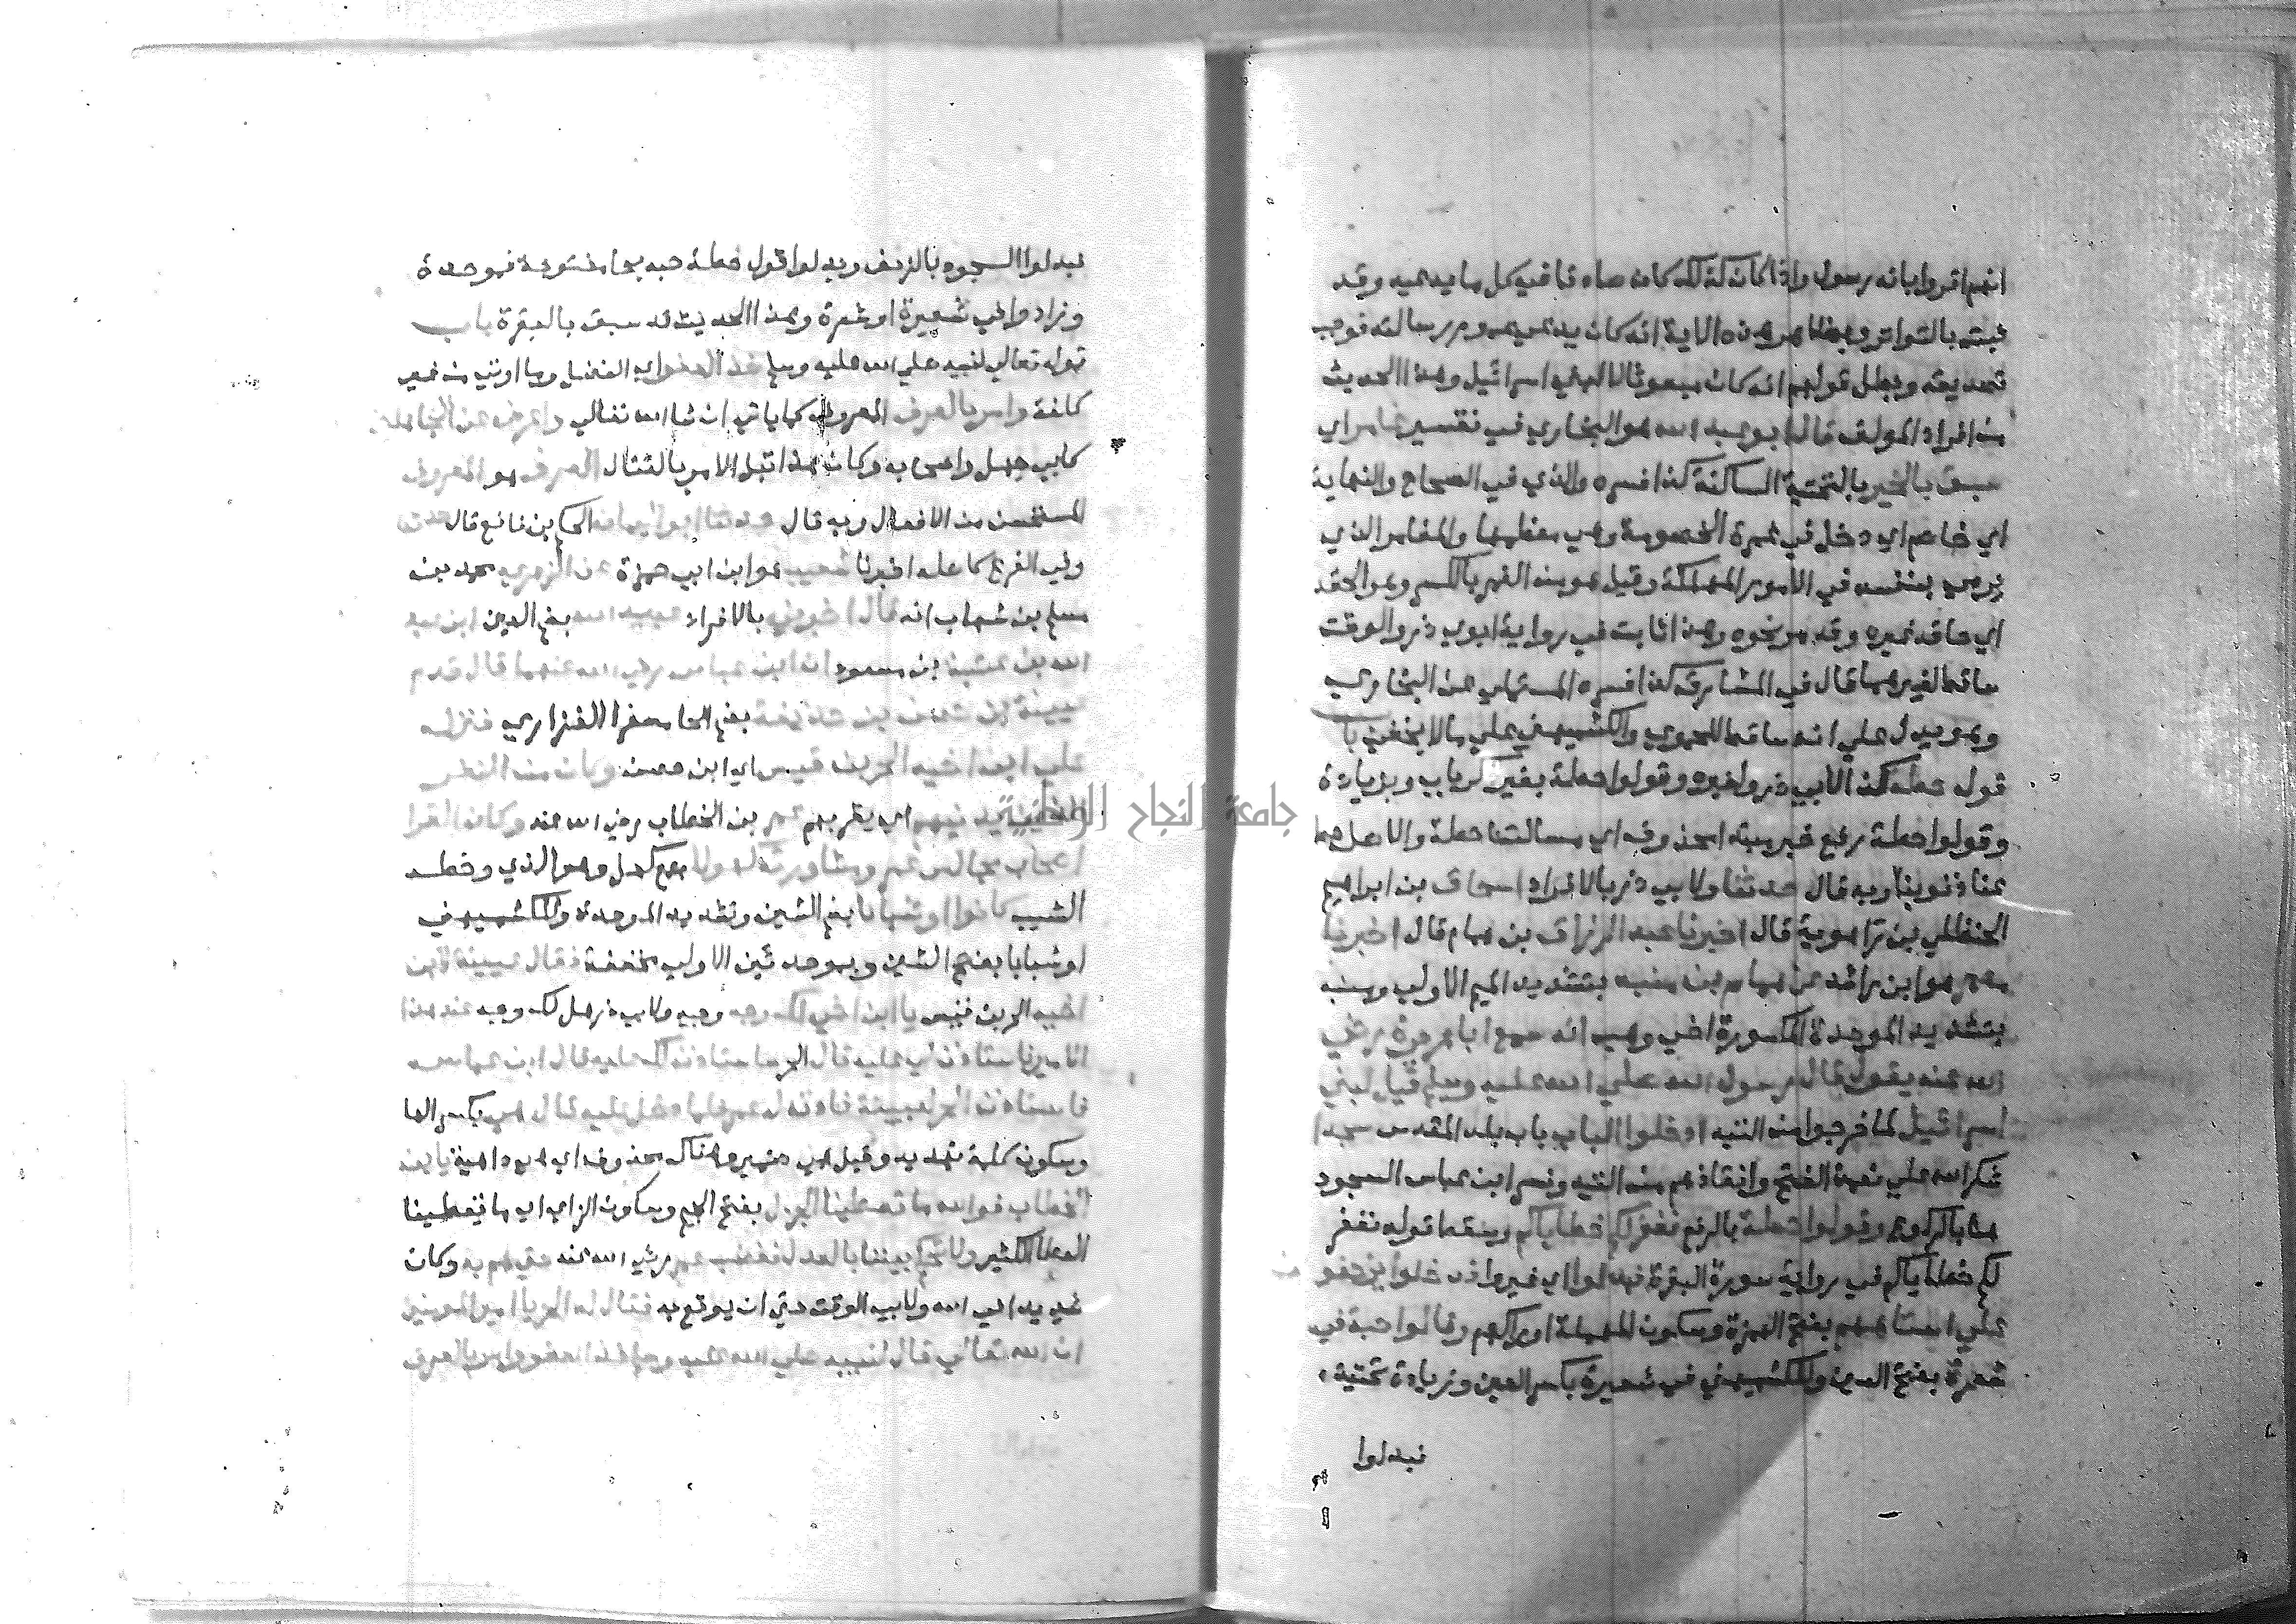 انهم اقروا بانه رسول واذا كان كذلك كان صادقا في كل ما يدعيه وقد
ثبت بالتواتر وبظاهر هذه الاية انه كان يدعي عموم رسالته فوجب
تصديقه وبطل قولهم انه كان مبعوثا لا الي بني اسرائيل وهذا الحديث
من افراد المولف قال ابو عبد الله هو البخاري في تفسير غامر اي
سبق بالخير بالتحتية الساكنة كذا فسره والذي في الصحاح والنهاية
اي خاصم اي دخل في غمرة الخصومة وهي معظمها والمغامر الذي
يرمي بنفسه في الامور المهلكة وقيل هو من الغمر بالكسر وهو الحقد
اي حاقد غيره وقد مر نحوه وهذا ثابت في رواية ابوي ذر والوقت
ساقط لغيرهما قال في المشارق كذا فسره المستملي عن البخاري
وهو يدل علي انه ساقط للحموي والكشميهني علي ما لا يخفي باب
قوله حطة كذا لابي ذر ولغيره وقولوا حطة بغير ذكر باب وبزيادة
وقولوا حطة رفع خبر مبتدا محذوف اي مسالتنا حطة والاصل حط
عنا ذنوبنا وبه قال حدثنا ولابي ذر بالافراد اسحاق بن ابراهيم
الحنظلي بن راهوية قال اخبرنا عبد الرزاق بن همام قال اخبرنا
معمر هو ابن راشد عن همام بن منبه بتشديد الميم الاولي ومنبه
بتشديد الموحدة المكسورة اخي وهب انه سمع ابا هريرة رضي
الله عنه يقول قال رسول الله صلي الله عليه وسلم قيل لبني
اسرائيل لما خرجوا من التيه ادخلوا الباب باب بلد المقدس سجدا
شكرا لله علي نعمة الفتح وانقاذهم من التيه وفسر ابن عباس السجود
هنا بالركوع وقولوا حطة بالرفع نغفر لكم خطاياكم وسقط قوله نغفر
لكم خطاياكم في رواية سورة البقرة فبدلوا اي غيروا فدخلوا يزحفون
علي استاههم بفتح الهمزة وسكون المهملة اوراكهم وقالوا حبة في
شعرة بفتح العين وللكشميهني في شعيرة بكسر العين وزيادة تحتية
فبدلوا
فبدلوا السجود بالزحف وبدلوا قول حطة حبه بحا مفتوحة فموحدة
وزادوا في شعيرة او شعرة وهذا الحديث قد سبق بالبقرة باب
قوله تعالي لنبيه صلي الله عليه وسلم خذ العفو اي الفضل وما اوتي من غير
كلفة وامر بالعرف المعروف كما ياتي ان شا الله تعالي واعرض عن الجاهلين
كابي جهل واصحابه وكان هذا قبل الامر بالقتال العرف هو المعروف
المستحسن من الافعال وبه قال حدثنا ابو اليمان الحكم بن نافع قال حدثنا
وفي الفرع كاصله اخبرنا شعيب هو ابن ابي حمزة عن الزهري محمد بن
مسلم بن شهاب انه قال اخبرني بالافراد عبيد الله بضم العين ابن عبد
الله بن عتبة بن مسعود ان ابن عباس رضي الله عنهما قال قدم
عيينة بن حصن بن حذيفة بضم الحا مصغرا الفزاري فنزل
علي ابن اخيه الحر بن قيس اي ابن حصن وكان من النفر
الذين يدنيهم اي يقربهم عمر بن الخطاب رضي الله عنه وكان القرا
اصحاب مجالس عمر ومشاورته كهولا جمع كهل وهو الذي وخطه
الشيب كانوا او شبانا بضم الشين وتشديد الموحدة وللكشميهني
او شبابا بفتح الشين وبموحدتين الاولي مخففة فقال عيينة لابن
اخيه الحر بن قيس يا ابن اخي لك وجه وجيه ولابي ذر هل لك وجه عند هذا
الامير فاستاذن لي عليه قال الحر ساستاذن لك عليه قال ابن عباس
فاستاذن الحر لعيينة فاذن له عمر فلما دخل عليه قال هي بكسر الها
وسكون كلمة تهديد وقيل هي ضمير وهناك محذوف اي هي داهية يا بن
الخطاب فوالله ما تعطينا الجزل بفتح الجيم وسكون الزاي اي ما تعطينا
العطا الكثير ولا تحكم بيننا بالعدل فغضب عمر رضي الله عنه حتي هم به وكان
شديد افي الله ولابي الوقت حتي ان يوقع به فقال له الحر يا امير المومنين
ان الله تعالي قال لنبيه صلي الله عليه وسلم خذ العفو وامر بالعرف
جامعة النجاح الوطنية